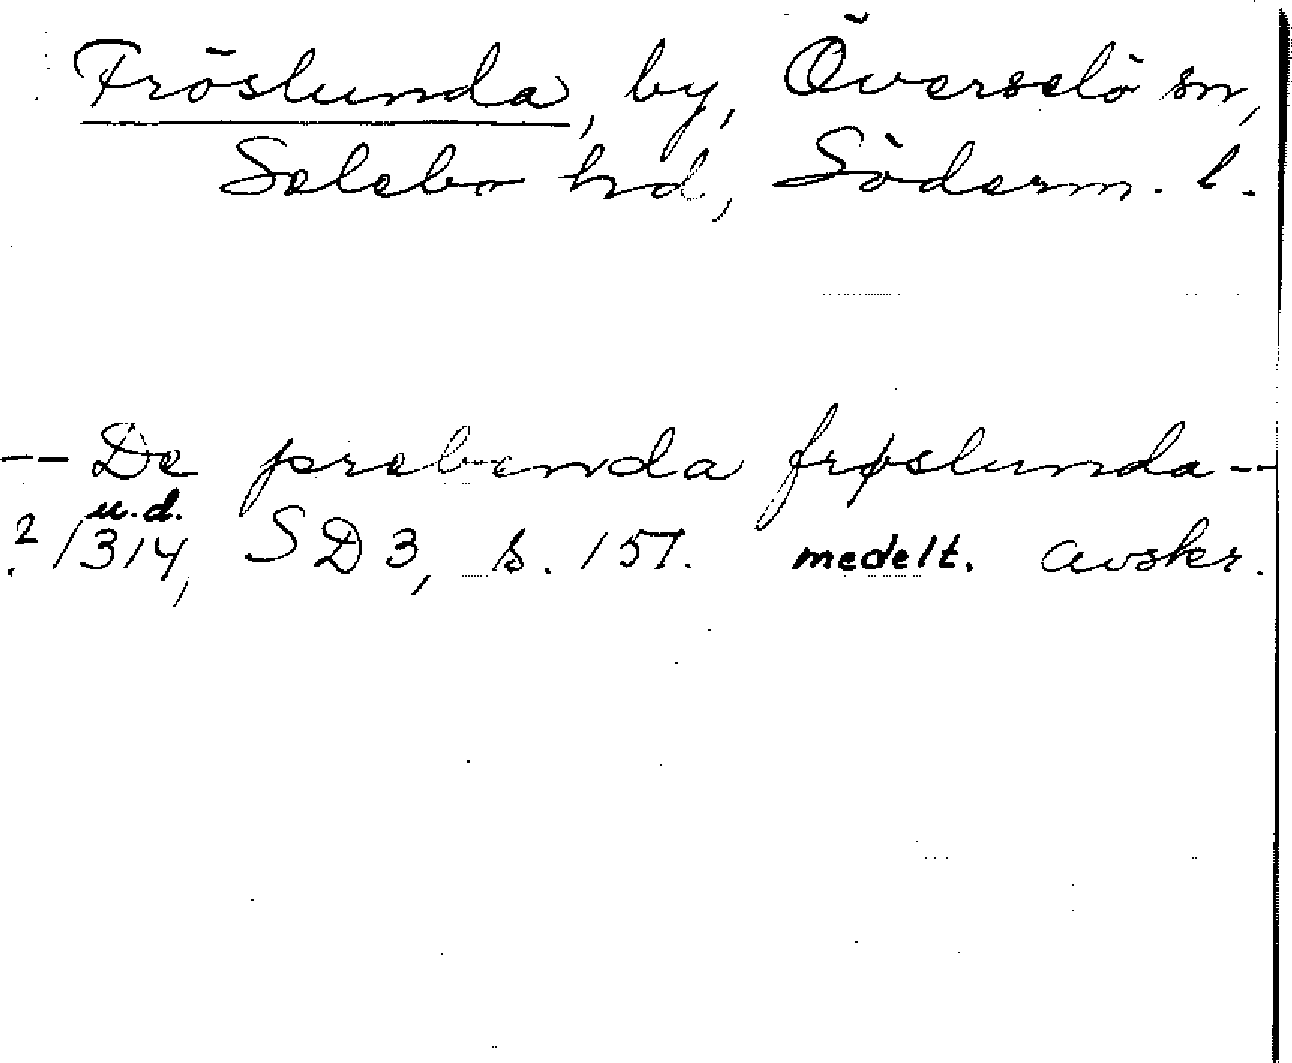 Fröslunda, by, Överselö sn,
Selebo hd, Söderm. l.
-- De prebenda frøslunda --
u.d.
? 1314, SD 3, s. 151. medelt. avskr.